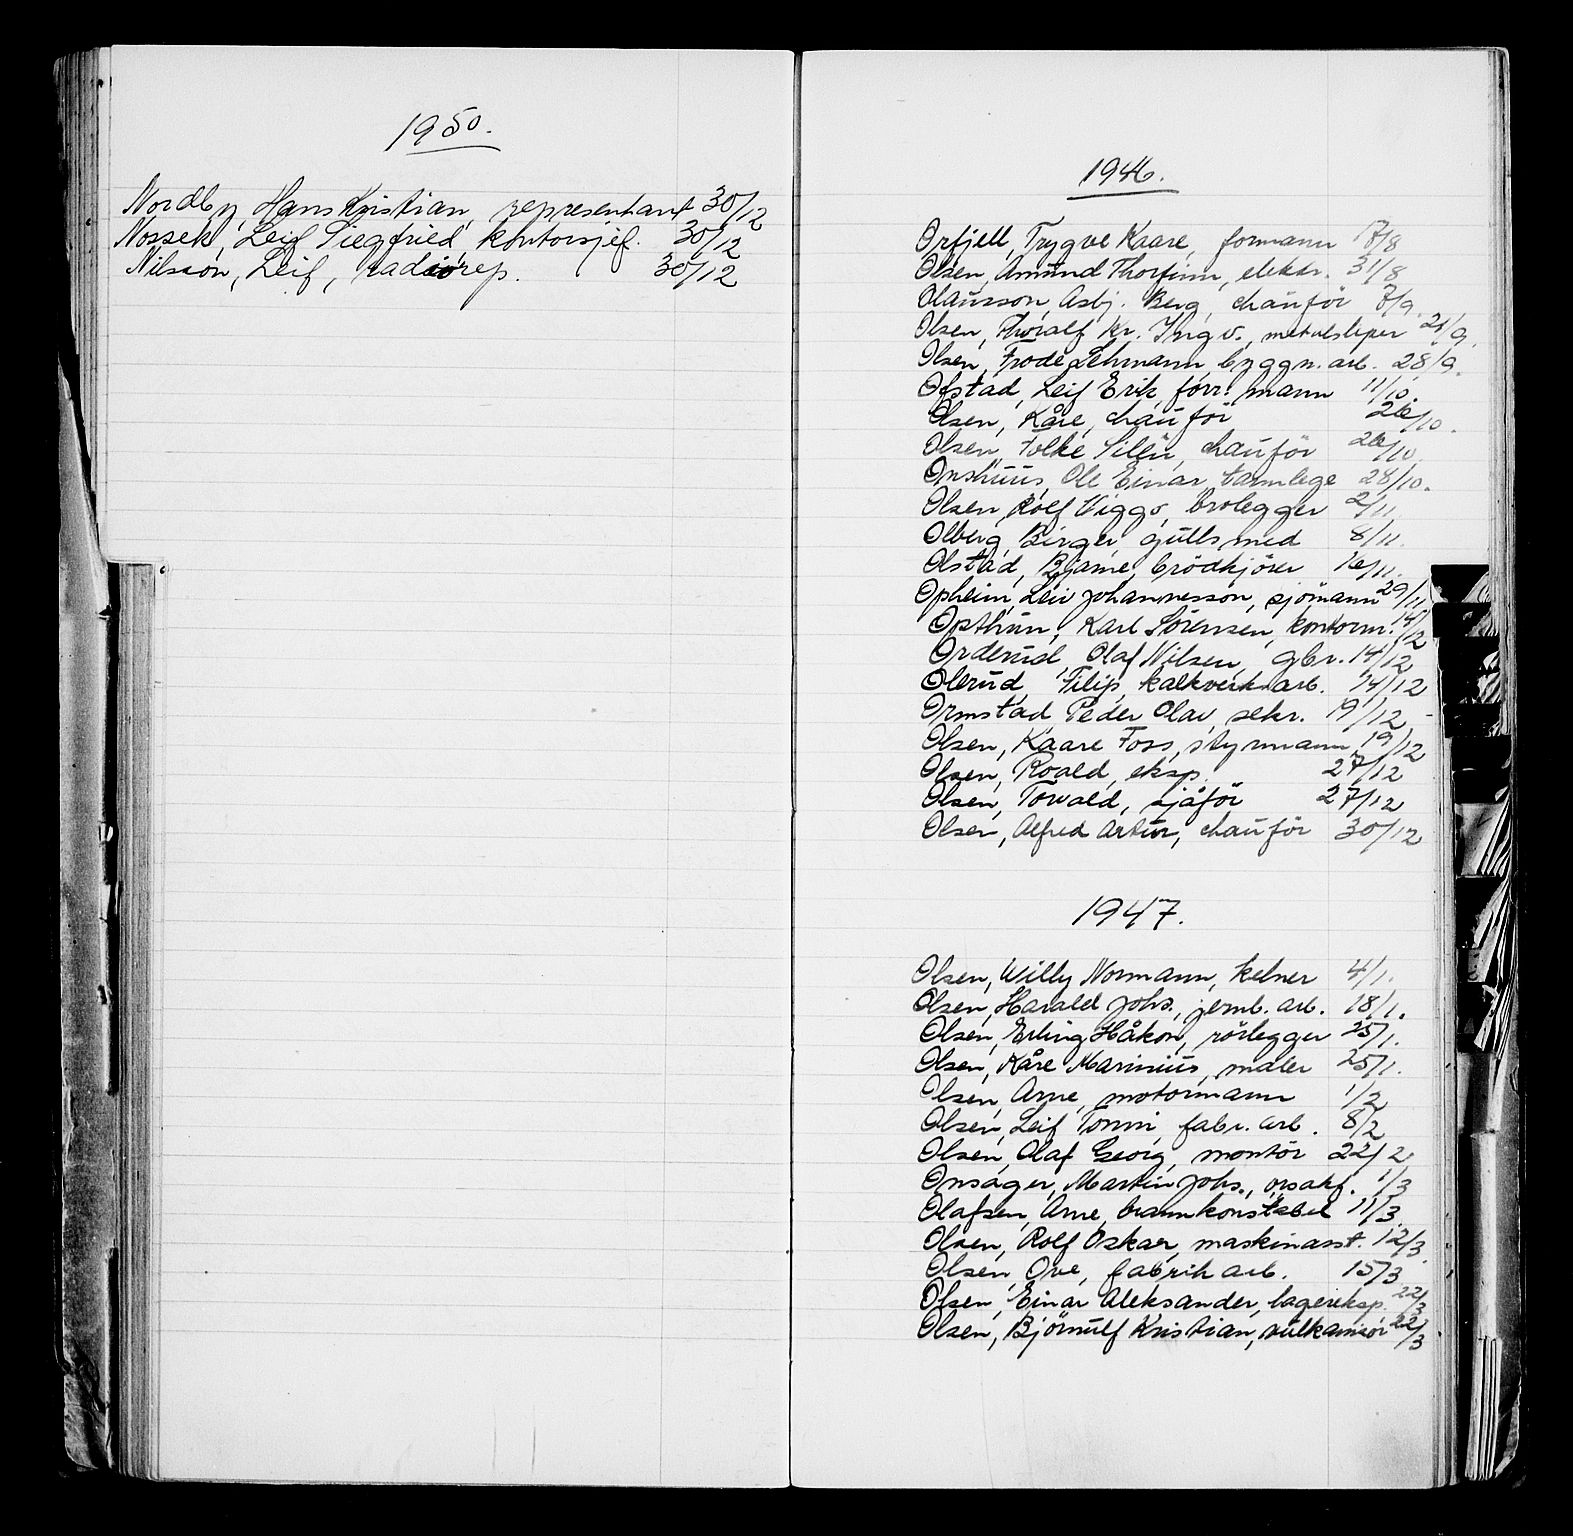 1950.
Nordby, Hans Kristian, representant 30/12
Nossek, Leif Siegfried, kontorsjef. 30/12
Nilsson, Leif, radiorep. 30/12
1946.
Orfjell, Trygve Kaare, formann /8
Olsen, Amund Thorfinn, elektr. 31/8
Olausson, Asbj. Berg, chauför 7/9.
Olsen, Thoralf Kr. Ingv., metalsliper 21/9.
Olsen, Frode Lehmann, byggn. arb. 28/9.
Ofstad, Leif Erik, forr. mann 11/10.
Olsen, Kåre, chauför 26/10.
Olsen, Folke Silén, chauför 26/10.
Onshuus, Ole Einar, tannlege 28/10.
Olsen, Rolf Viggo, brolegger 2/11.
Olberg, Birger, gullsmed 8/11.
Olstad, Bjarne, brödkjörer 16/11.
Opheim, Leiv Johannesson, sjömann 29/11.
Opthun, Karl Sörensen, kontorm. 14/12
Orderud, Olaf Nilsen, gbr. 14/12
Olerud, Filip, kalkverk. arb. 14/12
Ormstad, Peder Olav, sekr. 19/12.
Olsen, Kaare Foss, styrmann 19/12
Olsen, Roald, eksp. 27/12
Olsen, Torvald, sjåför 27/12
Olsen, Alfred Artur, chauför 30/12
1947.
Olsen, Willy Normann, kelner 4/1.
Olsen, Harald Johs., jernb. arb. 18/1.
Olsen, Erling Håkon, rörlegger 25/1.
Olsen, Kåre Marinius, maler 25/1.
Olsen, Arne, motormann 1/2
Olsen, Leif Tommi, fabr. arb. 8/2
Olsen, Olaf Georg, montör 22/2
Onsager, Martin Johs., orsakf. 1/3
Olafsen, Arne, brannkonstabel 11/3.
Olsen, Rolf Oskar, maskinasst. 12/3.
Olsen, Ove, fabrik arb. 15/3
Olsen, Einar Aleksander, lagereksp. 22/3
Olsen, Björnulf Kristian, vulkanisör 22/3